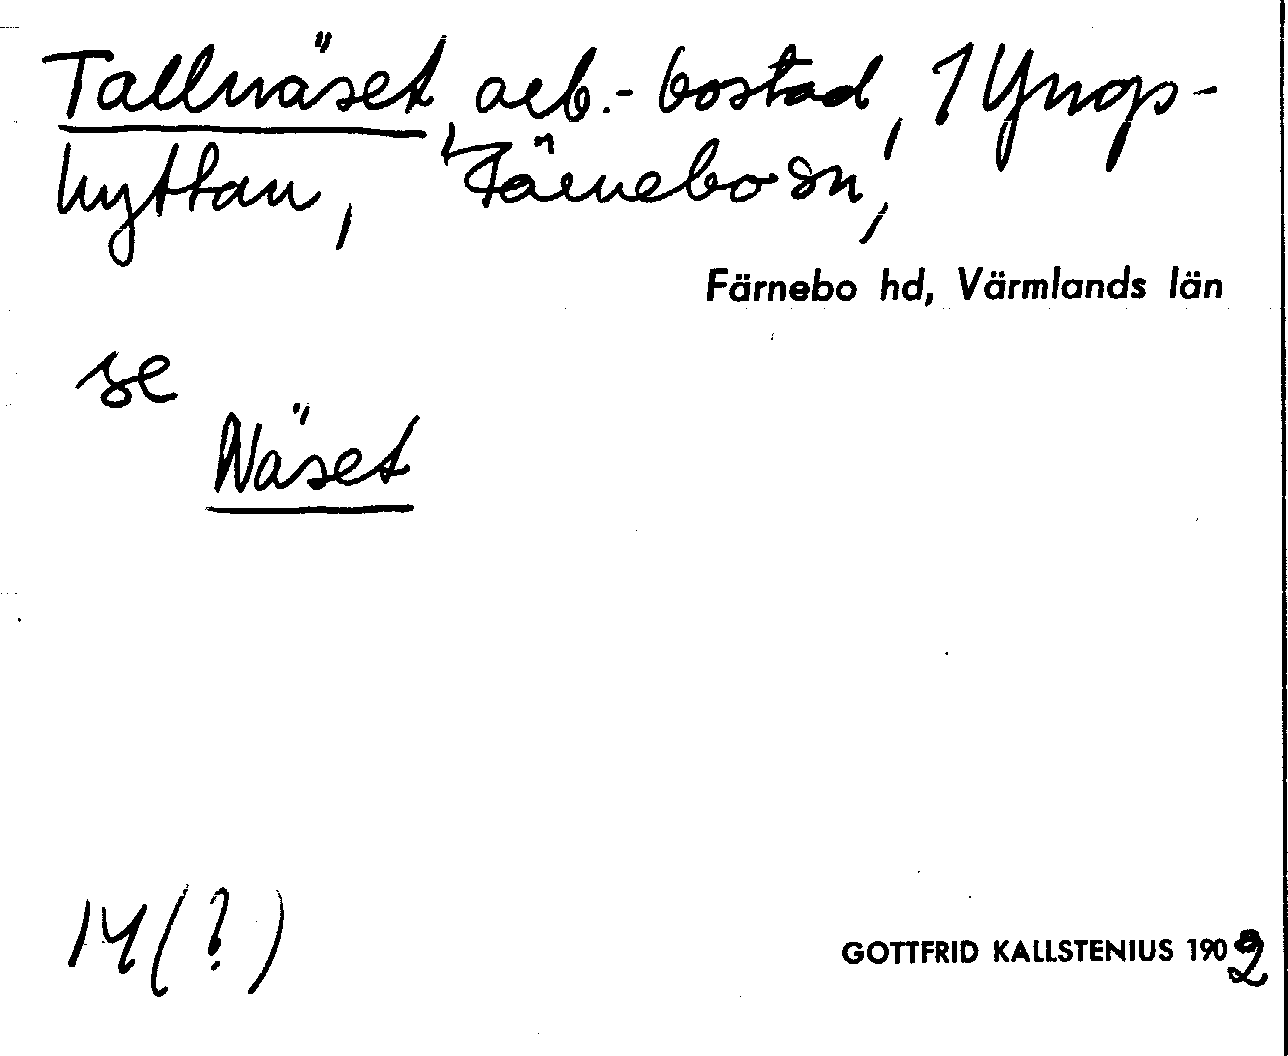 Tallnäset, arb.-bostad, 1 Yngs-
hyttan, Färnebo sn,
Färnebo hd, Värmlands län
se
Näset
14 (?)
GOTTFRID KALLSTENIUS 1902